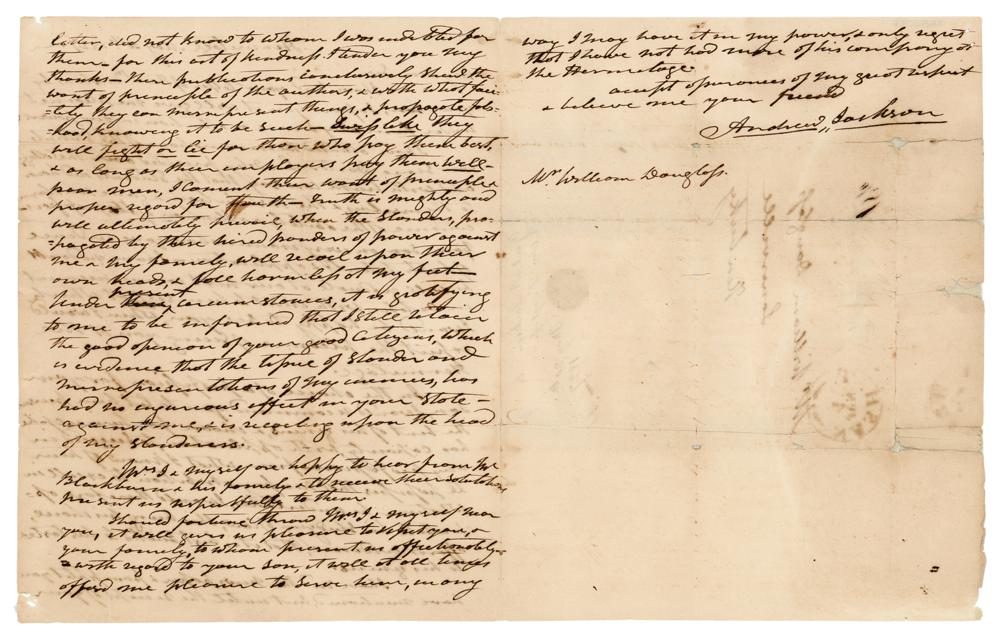 letter, did not know to whom I was indebted for
them – for this act of kindness I tender you my
thanks – Their publications conclusively shew the
want of principle of the authors, & with what faci-
-lity they can misrepresent things, & propagate fals-
-hood, knowing it to be such – Swiss like they
will fight or lie for those who pay them best,
& as long as their employers pay them well –
poor men, I lament their want of principle &
proper regard for truth – truth is mighty and
will ultimately prevail, when the slanders, pro-
-pagated by these hired panders of power against
me & my famely, will recoil upon their
own heads, & fall harmless at my feet –
Under present circumstances, it is gratifying
to me to be informed that I still retain
the good opinion of your good Citizens, which
is evidence that the tissue of slander and
misrepresentations of my enemies, has
had no injureous effect in your State –
against me, & is recoiling upon the head
of my slanderers.
Mrs J & myself are happy to hear from Mr
Blackburn & his famely & to receive their salutations
present us respectfully to them
Should fortune throw Mrs J & myself near
you, it will give us pleasure to visit you, &
your famely, to whom present us affectionately –
& with regard to your son, it will at all times
afford me pleasure to serve him, in any
way I may have it in my power, & only regret
that I have not had more of his company at
the Hermitage.
accept assurances of my great respect
& believe me your friend
Andrew Jackson
Mr William Douglass.